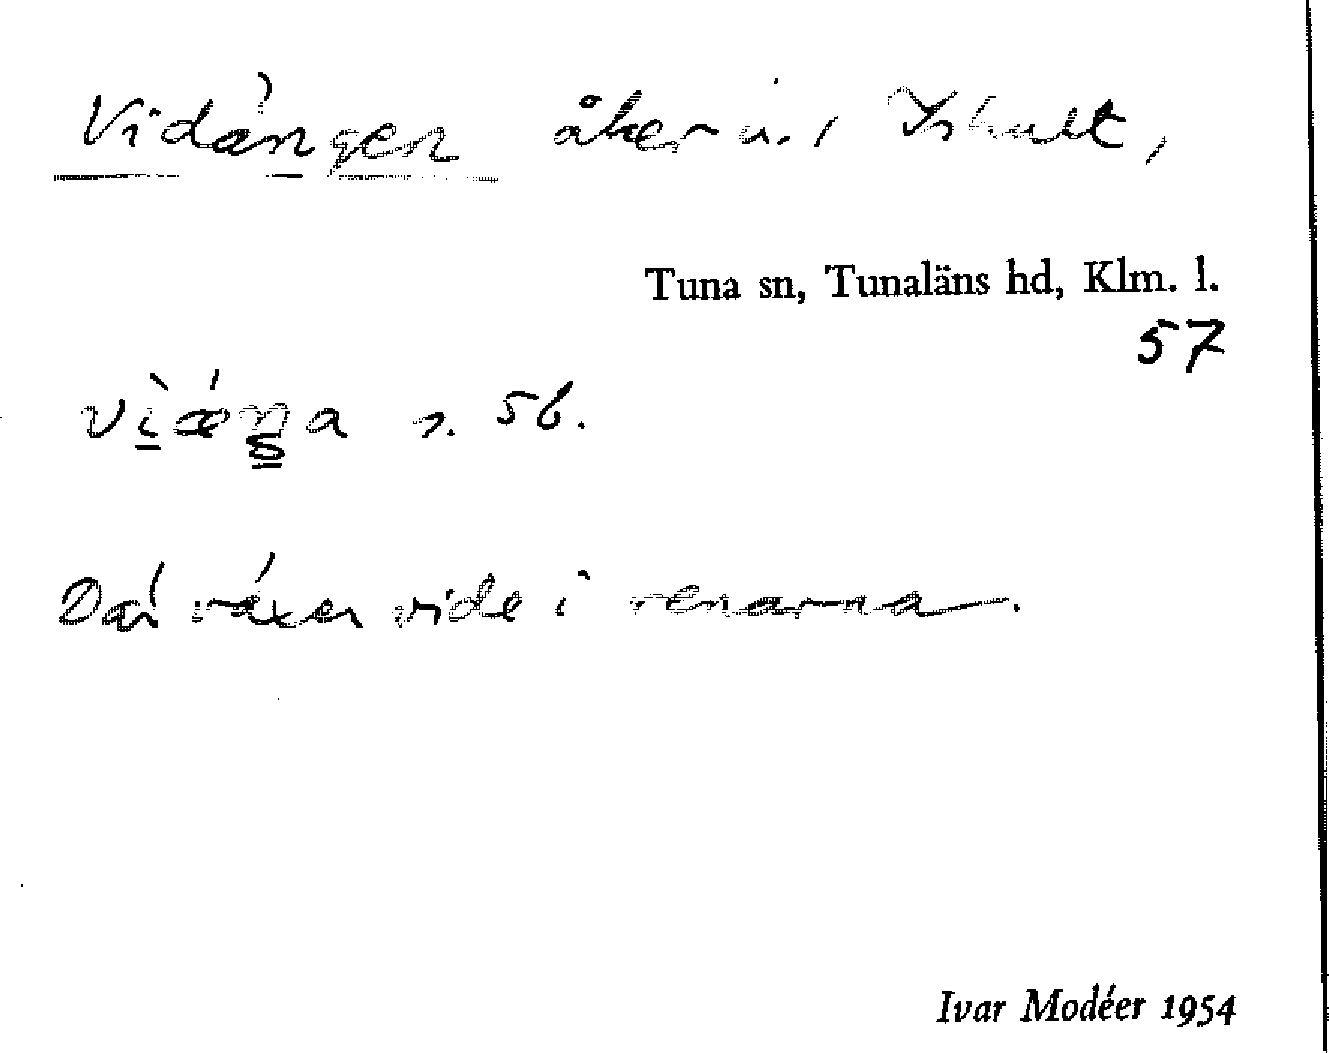 Vidängen åker u. Ishult,
Tuna sn, Tunaläns hd, Klm. l.
57
s. 56.
Där växer vide i renarna.
Ivar Modéer 1954